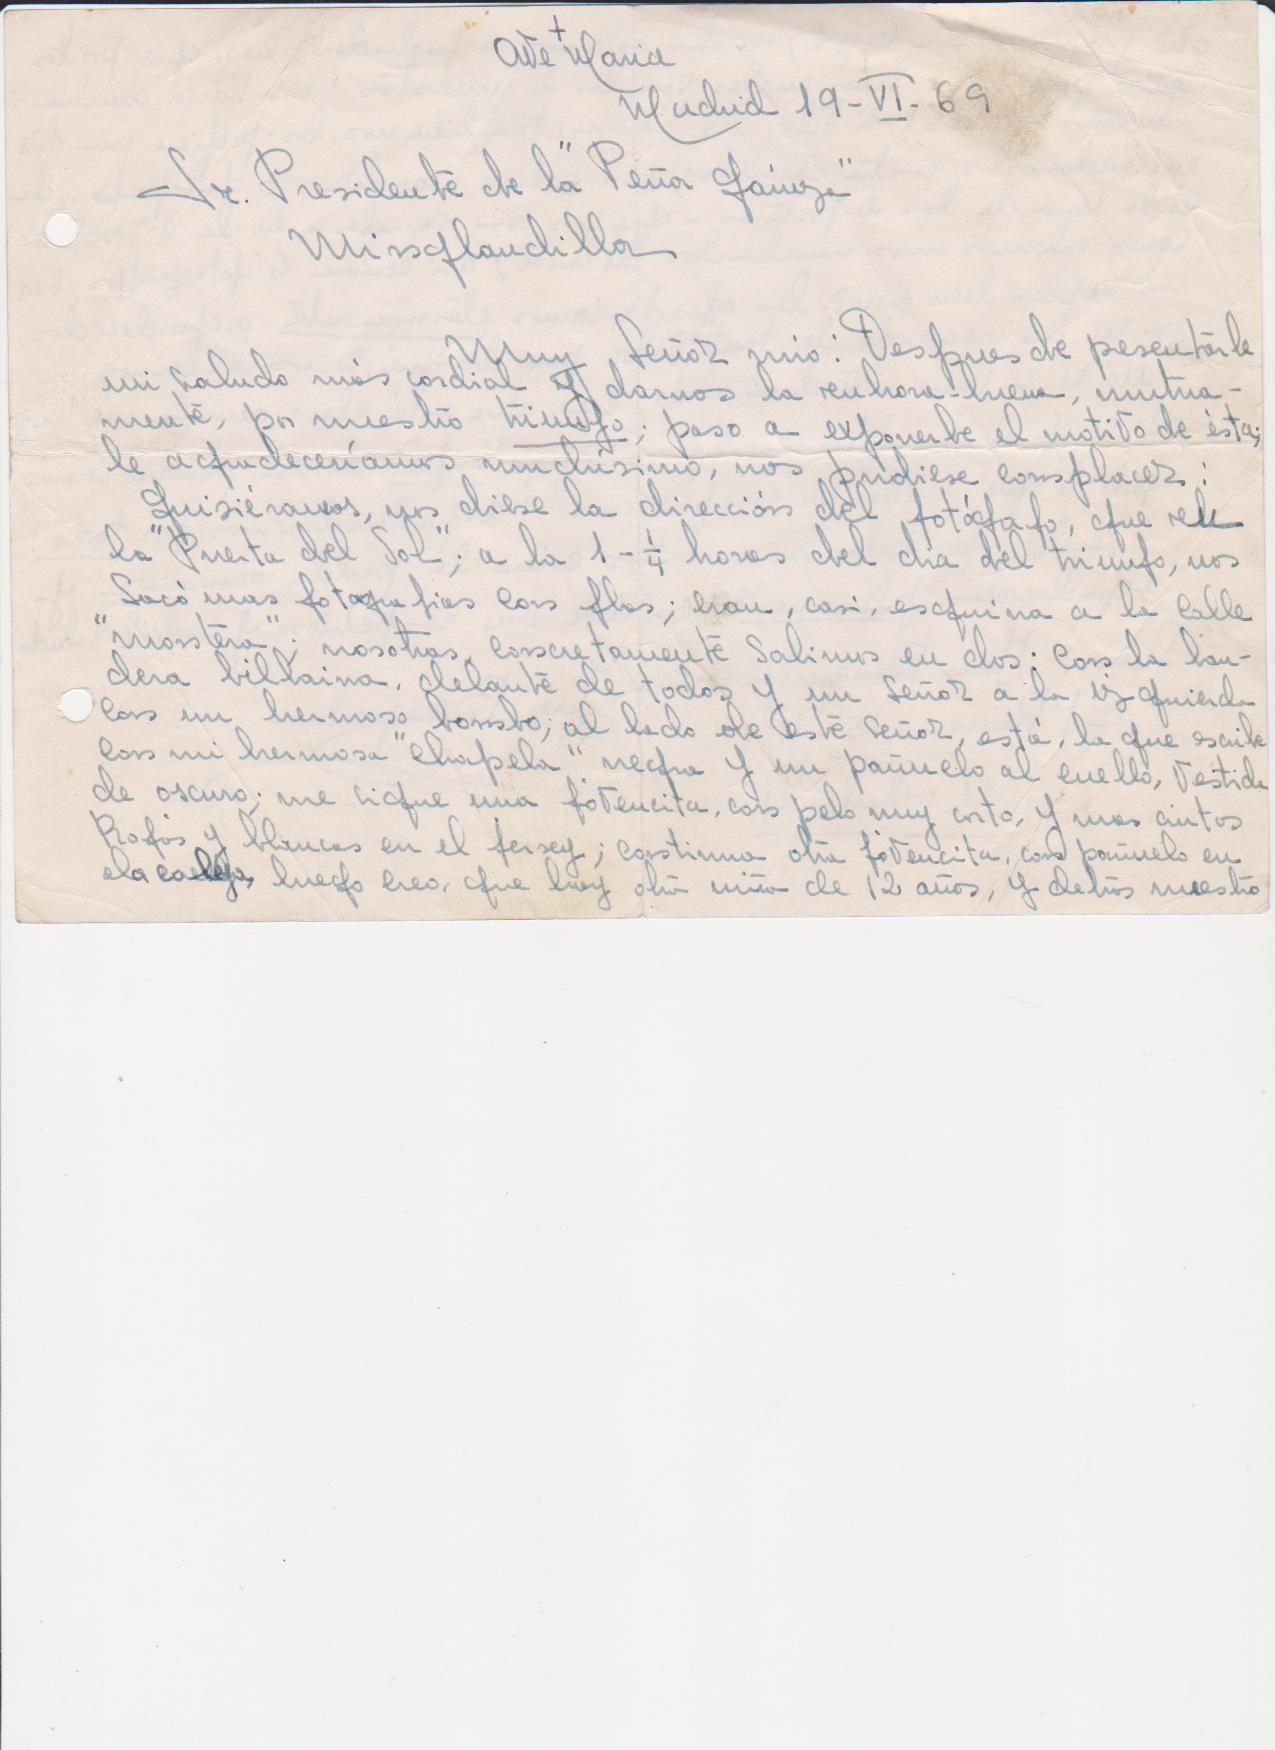 Ave + Maria
Madrid 19-VI-69
Sr. Presidente de la "Peña Gainza"
Miraflandilla
Muy Señor mio: Despues de pesentarle
mi saludo más cordial y darnos la enhora-buena, mutua-
mente, por nuestro triunfo; paso a exponerle el motivo de ésta;
le agradeceríamos muchísimo, nos pudiese complacer:
Quisiéramos, nos diese la dirección del fotógrafo, que en
la "Puerta del Sol"; a la 1-1/4 horas del dia del triunfo, nos
Sacó unas fotografias con flas; eran, casi, esquina a la calle
"montera"; nosotras, concretamente Salimos en dos: con la ban-
dera bilbaina, delante de todos y un Señor a la izquierda
con un hermoso bombo; al lado de este Señor, está, la que escribe
con mi hermosa "chapela" negra y un pañuelo al cuello, vestida
de oscuro; me sigue una jovencita, con pelo muy corto, y unas cintas
Rojas y blancas en el jersey; continua otra jovencita, con pañuelo en
la cabeza, luego creo, que hay otra niña de 12 años, y detrás nuestro